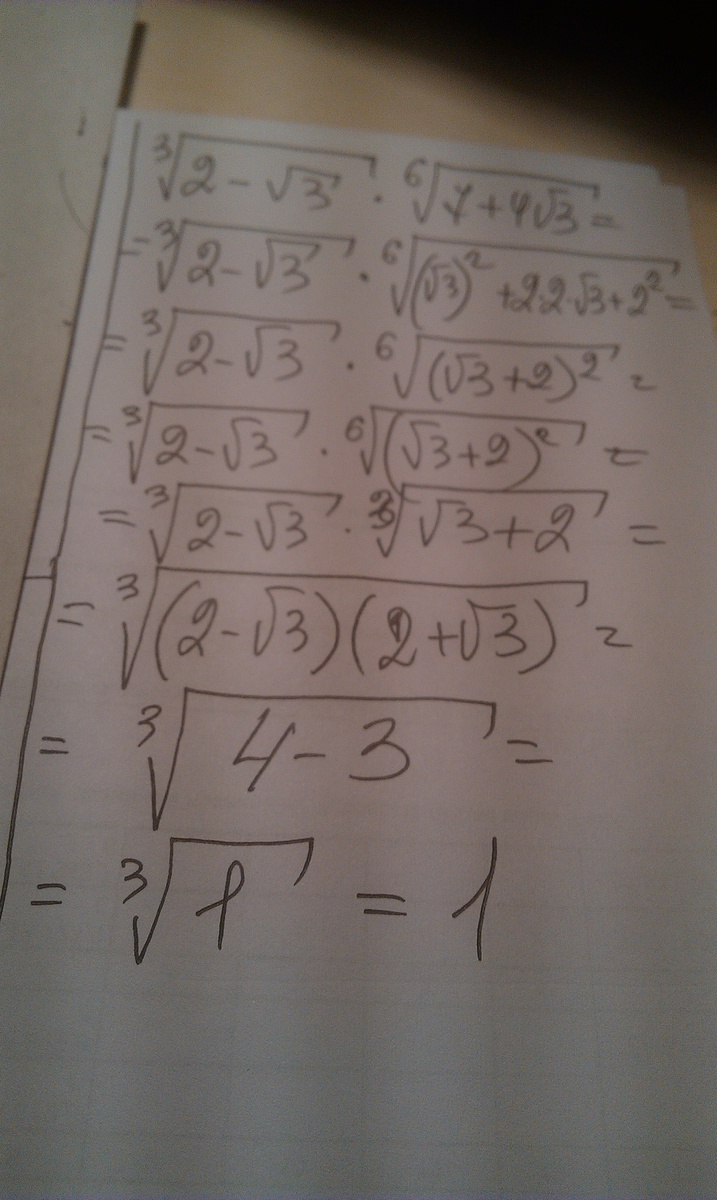 ∛(2 − √3) · ⁶√(7 + 4√3) =
= ∛(2 − √3) · ⁶√((√3)² + 2·2·√3 + 2²) =
= ∛(2 − √3) · ⁶√((√3 + 2)²) =
= ∛(2 − √3) · ⁶√((√3 + 2)²) =
= ∛(2 − √3) · ∛(√3 + 2) =
= ∛((2 − √3)(2 + √3)) =
= ∛(4 − 3) =
= ∛1 = 1